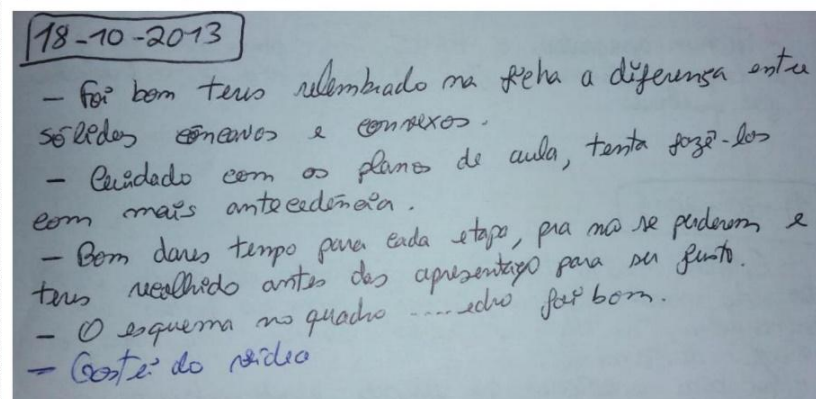 18-10-2013
- Foi bom teres relembrado na ficha a diferença entre
sólidos côncavos e convexos.
- Cuidado com os planos de aula, tenta fazê-los
com mais antecedência.
- Bom dares tempo para cada etapa, pra não se perderem e
teres recolhido antes das apresentação para ser justo.
- O esquema no quadro ....edro foi bom.
- Gostei do vídeo